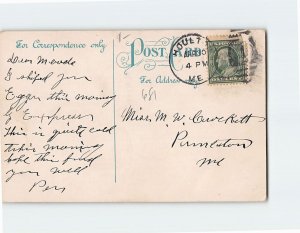 For Correspondence only.
POST CARD
For Address only.
HOULT
4 PM
ME.
681
Dear
I shiped you
Eggs this morning
Express
this is quite cold
this morning
hope this find
you well
Miss. M. W. Crockett
Princeton
Me